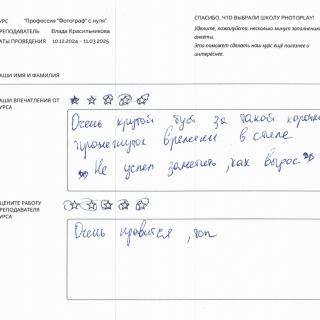 УРС "Профессия "Фотограф" с нуля"
РЕПОДАВАТЕЛЬ Влада Красильникова
АТЫ ПРОВЕДЕНИЯ 10.12.2024 - 11.03.2025
СПАСИБО, ЧТО ВЫБРАЛИ ШКОЛУ PHOTOPLAY!
Уделите, пожалуйста, несколько минут заполнению
анкеты.
Это поможет сделать наш курс ещё полезнее и
интереснее.
АШИ ИМЯ И ФАМИЛИЯ
АШИ ВПЕЧАТЛЕНИЯ ОТ
УРСА
Очень крутой буст за такой коротк
промежуток времени в стиле
"Не успел заметить, как вырос"
ЦЕНИТЕ РАБОТУ
РЕПОДАВАТЕЛЯ
УРСА
Очень нравится, топ